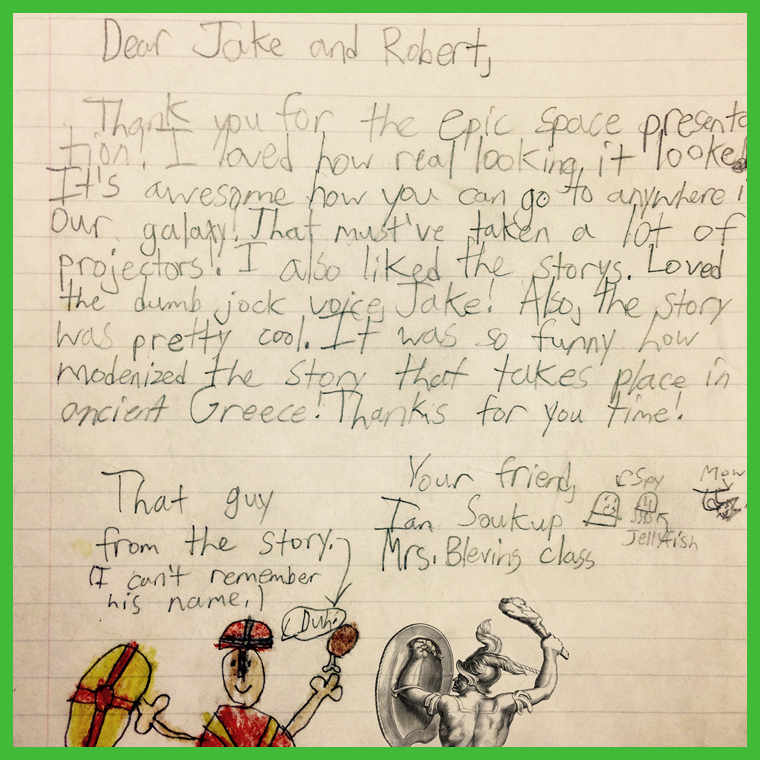 Dear Jake and Robert,
Thank you for the epic space presenta
tion! I loved how real looking it looked
It's awesome how you can go to anywhere i
Our galaxy! That must've taken a lot of
projectors! I also liked the storys. Loved
the dumb jock voice, Jake! Also, the story
was pretty cool. It was so funny how
modenized the story that takes place in
ancient Greece! Thanks for you time!
Your friend,
Ian Soukup
Mrs. Blevins class
Spy
Jellyfish
Mow
That guy
from the story.
(I can't remember
his name.)
Duh!